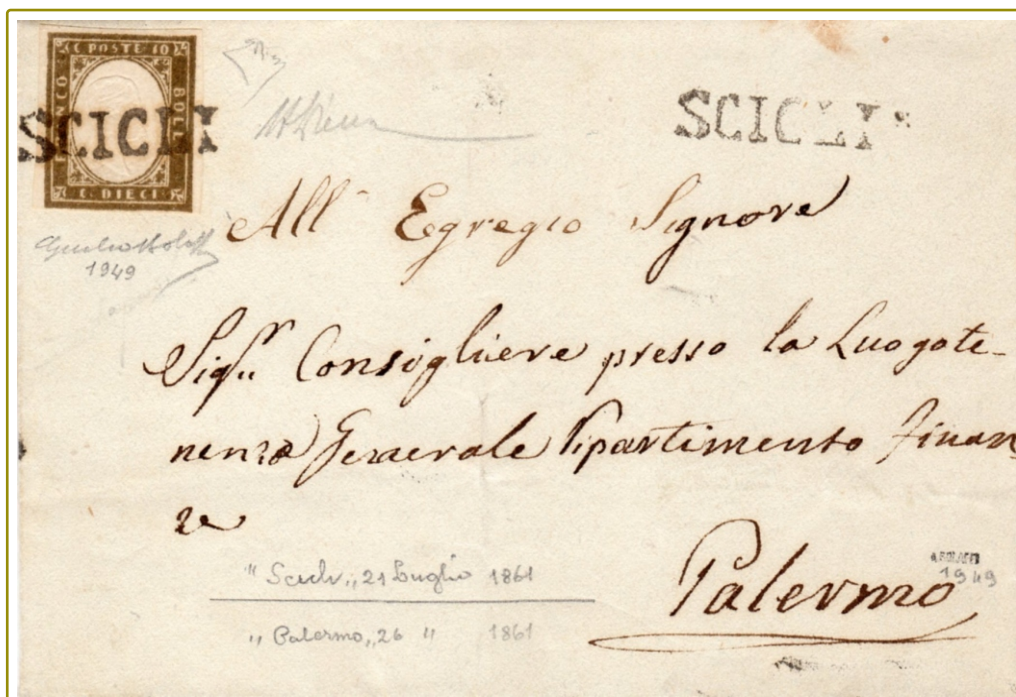 C. POSTE 10
FRANCO
BOLLO
C. DIECI
SCICLI
SCICLI
All' Egregio Signore
Sig.r Consigliere presso la Luogote-
nenza Generale Dipartimento Finan
ze
Palermo
1949
A. BOLAFFI
1949
" Scicli „ 21 Luglio 1861
„ Palermo „ 26 " 1861